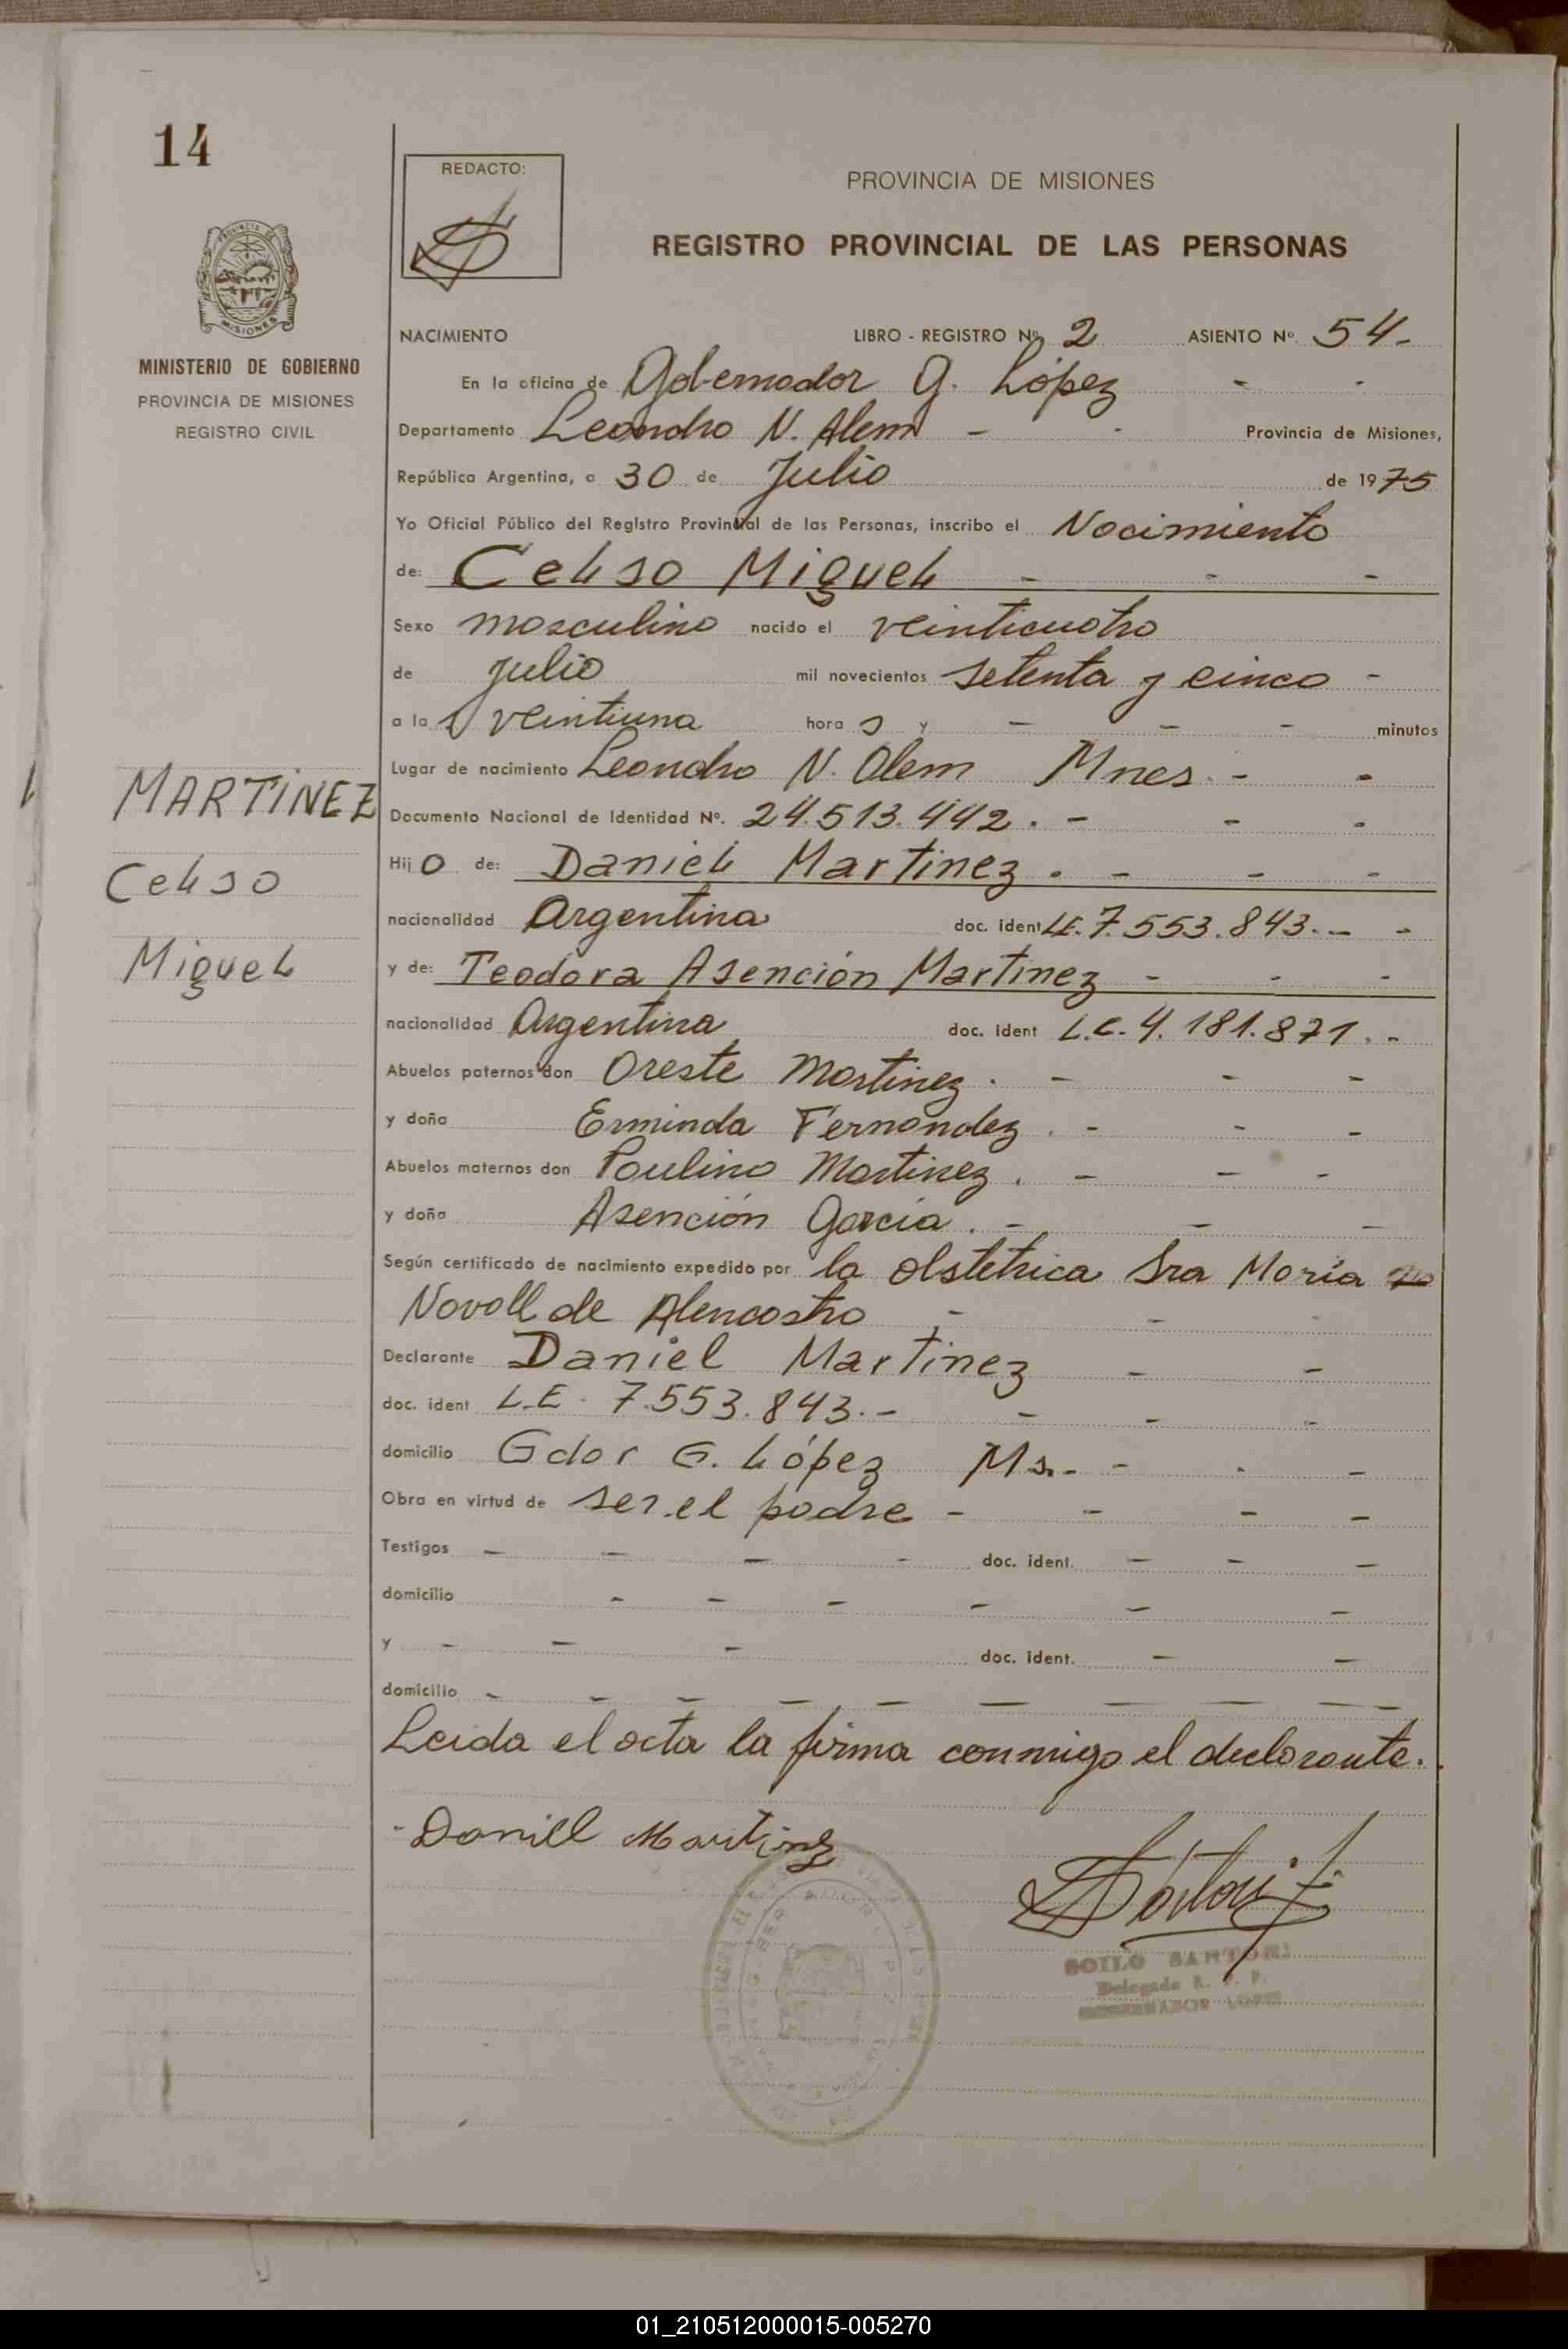 14
REDACTO:
PROVINCIA DE MISIONES
REGISTRO PROVINCIAL DE LAS PERSONAS
MISIONES
MINISTERIO DE GOBIERNO
PROVINCIA DE MISIONES
REGISTRO CIVIL
NACIMIENTO LIBRO - REGISTRO Nº 2 ASIENTO Nº. 54.-
En la oficina de Gobernador G. López - -
Departamento Leandro N. Alem - - Provincia de Misiones,
República Argentina, a 30 de Julio de 1975
Yo Oficial Público del Registro Provincial de las Personas, inscribo el Nacimiento
de: Celso Miguel - - -
Sexo masculino nacido el veinticuatro
de julio mil novecientos setenta y cinco -
a la s veintiuna hora s y - - - minutos
MARTINEZ
Celso
Miguel
Lugar de nacimiento Leandro N. Alem Mnes. - -
Documento Nacional de Identidad Nº. 24.513.442. - - -
Hij o de: Daniel Martinez. - - -
nacionalidad Argentina doc. ident L.E. 7.553.843. - -
y de: Teodora Asención Martinez - - -
nacionalidad Argentina doc. ident L.C. 4.181.871. -
Abuelos paternos don Oreste Martinez. - - -
y doña Erminda Fernandez. - - -
Abuelos maternos don Paulino Martinez. - - -
y doña Asención Garcia. - - -
Según certificado de nacimiento expedido por la obstetrica Sra Maria
Novoll de Alencastro - - -
Declarante Daniel Martinez - -
doc. ident L.E. 7.553.843. - - - -
domicilio Gdor G. López Ms. - - - -
Obra en virtud de ser el padre - - - -
Testigos - - - - doc. ident. - - -
domicilio - - - - - -
y - - - doc. ident. - -
domicilio - - - - - - - - -
Leida el acta la firma conmigo el declarante.
Daniel Martinez
SOILO SARTORI
Delegado R. P. P.
GOBERNADOR LOPEZ
01_210512000015-005270